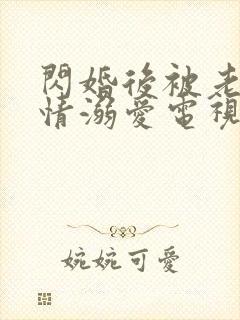 閃婚後被老
情溺愛電視
婉婉可愛